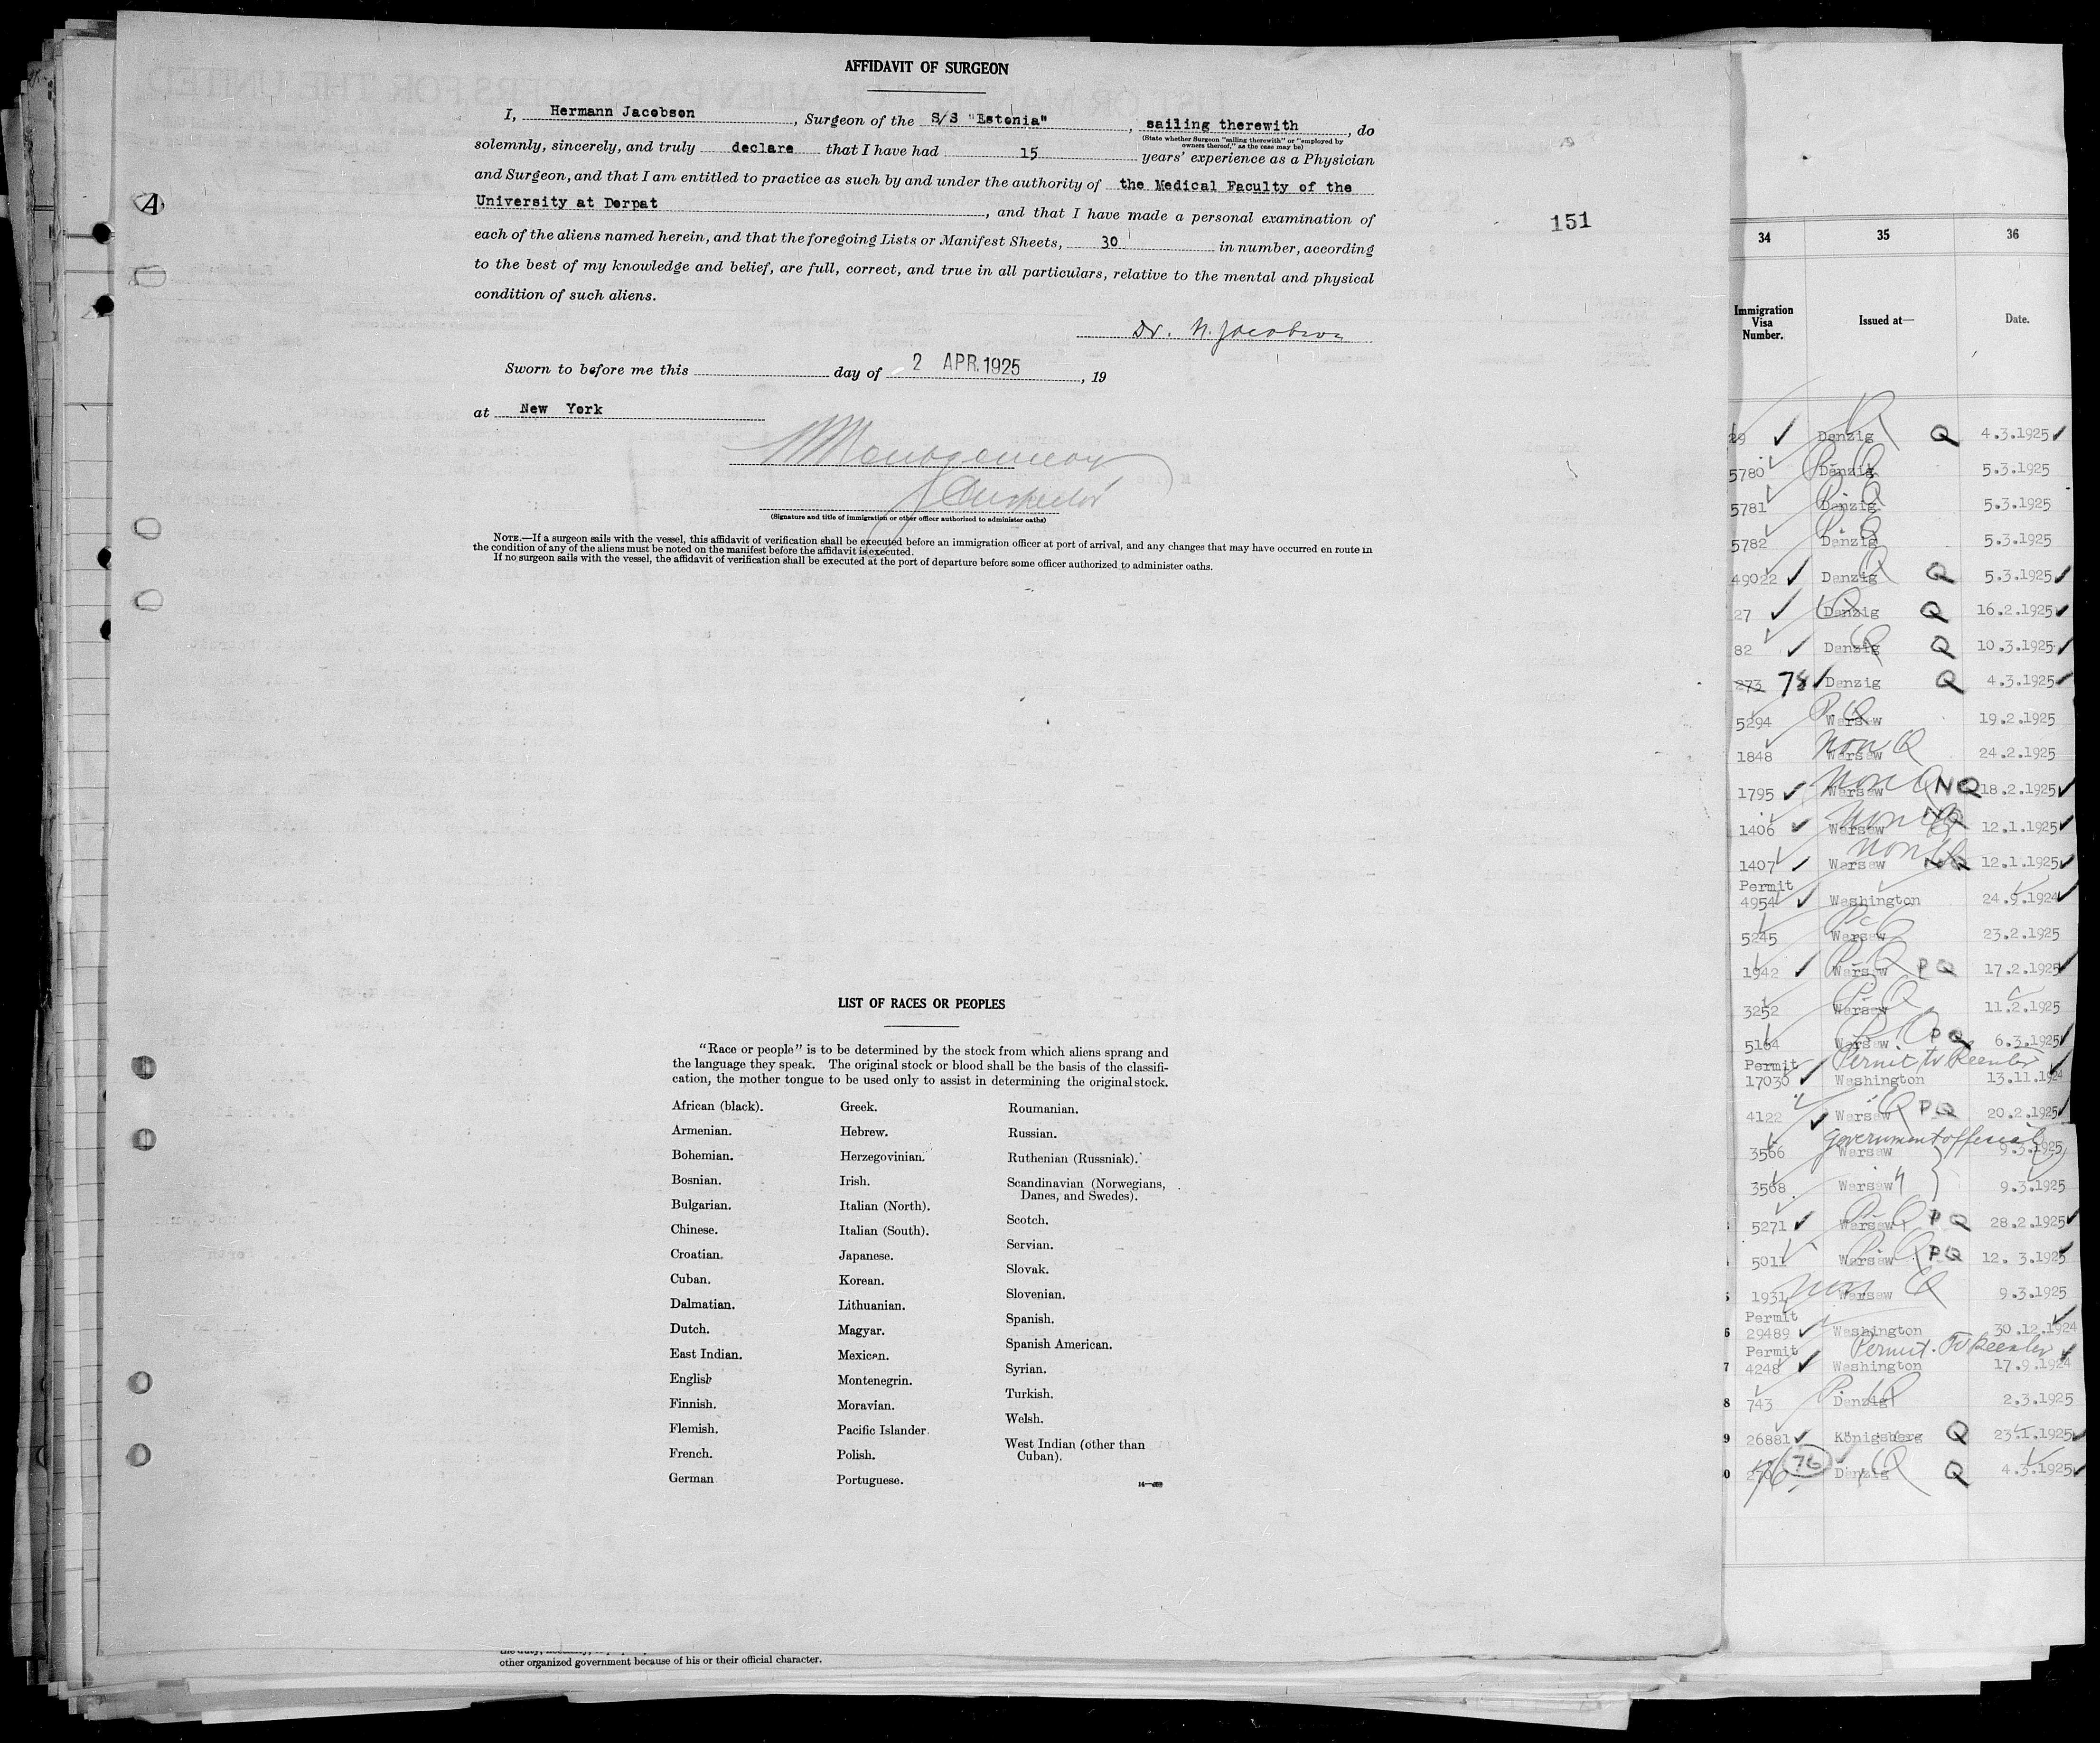 AFFIDAVIT OF SURGEON
I, Hermann Jacobson, Surgeon of the S/S "Estonia", sailing therewith, do
(State whether Surgeon "sailing therewith" or "employed by
owners thereof," as the case may be)
solemnly, sincerely, and truly declare that I have had 15 years' experience as a Physician
and Surgeon, and that I am entitled to practice as such by and under the authority of the Medical Faculty of the
University at Dorpat, and that I have made a personal examination of
each of the aliens named herein, and that the foregoing Lists or Manifest Sheets, 30 in number, according
to the best of my knowledge and belief, are full, correct, and true in all particulars, relative to the mental and physical
condition of such aliens.
Dr. H. Jacobson
Sworn to before me this day of 2 APR. 1925, 19
at New York
Montgomery
Inspector
(Signature and title of immigration or other officer authorized to administer oaths)
NOTE.—If a surgeon sails with the vessel, this affidavit of verification shall be executed before an immigration officer at port of arrival, and any changes that may have occurred en route in
the condition of any of the aliens must be noted on the manifest before the affidavit is executed.
If no surgeon sails with the vessel, the affidavit of verification shall be executed at the port of departure before some officer authorized to administer oaths.
A
151
LIST OF RACES OR PEOPLES
"Race or people" is to be determined by the stock from which aliens sprang and
the language they speak. The original stock or blood shall be the basis of the classifi-
cation, the mother tongue to be used only to assist in determining the original stock.
African (black).
Armenian.
Bohemian.
Bosnian.
Bulgarian.
Chinese.
Croatian.
Cuban.
Dalmatian.
Dutch.
East Indian.
English
Finnish.
Flemish.
French.
German
Greek.
Hebrew.
Herzegovinian.
Irish.
Italian (North).
Italian (South).
Japanese.
Korean.
Lithuanian.
Magyar.
Mexican.
Montenegrin.
Moravian.
Pacific Islander
Polish.
Portuguese.
Roumanian.
Russian.
Ruthenian (Russniak).
Scandinavian (Norwegians,
Danes, and Swedes).
Scotch.
Servian.
Slovak.
Slovenian.
Spanish.
Spanish American.
Syrian.
Turkish.
Welsh.
West Indian (other than
Cuban).
other organized government because of his or their official character.
34 35 36
Immigration
Visa
Number.
Issued at—
Date.
29 Danzig Q 4.3.1925
5780 Danzig P Q 5.3.1925
5781 Danzig P Q 5.3.1925
5782 Danzig P Q 5.3.1925
49022 Danzig Q 5.3.1925
27 Danzig Q 16.2.1925
82 Danzig Q 10.3.1925
273 78 Danzig Q 4.3.1925
5294 Warsaw P Q 19.2.1925
1848 Warsaw non Q 24.2.1925
1795 Warsaw non Q NQ 18.2.1925
1406 Warsaw non Q NQ 12.1.1925
1407 Warsaw non Q NQ 12.1.1925
Permit
4954 Washington 24.9.1924
5245 Warsaw 23.2.1925
1942 Warsaw P Q PQ 17.2.1925
3252 Warsaw P Q 11.2.1925
5164 Warsaw P Q PQ 6.3.1925
Permit Permit to Reenter
17030 Washington 13.11.1924
4122 Warsaw Q PQ 20.2.1925
Government official
3566 Warsaw 9.3.1925
3568 Warsaw " 9.3.1925
5271 Warsaw P Q PQ 28.2.1925
5011 Warsaw P Q PQ 12. 3.1925
1931 Warsaw non Q 9.3.1925
Permit
6 29489 Washington 30.12.1924
Permit Permit. To Reenter
7 4248 Washington 17.9.1924
8 743 Danzig P Q 2.3.1925
9 26881 Königsberg Q 23.1.1925
76 Danzig Q Q 4.3.1925